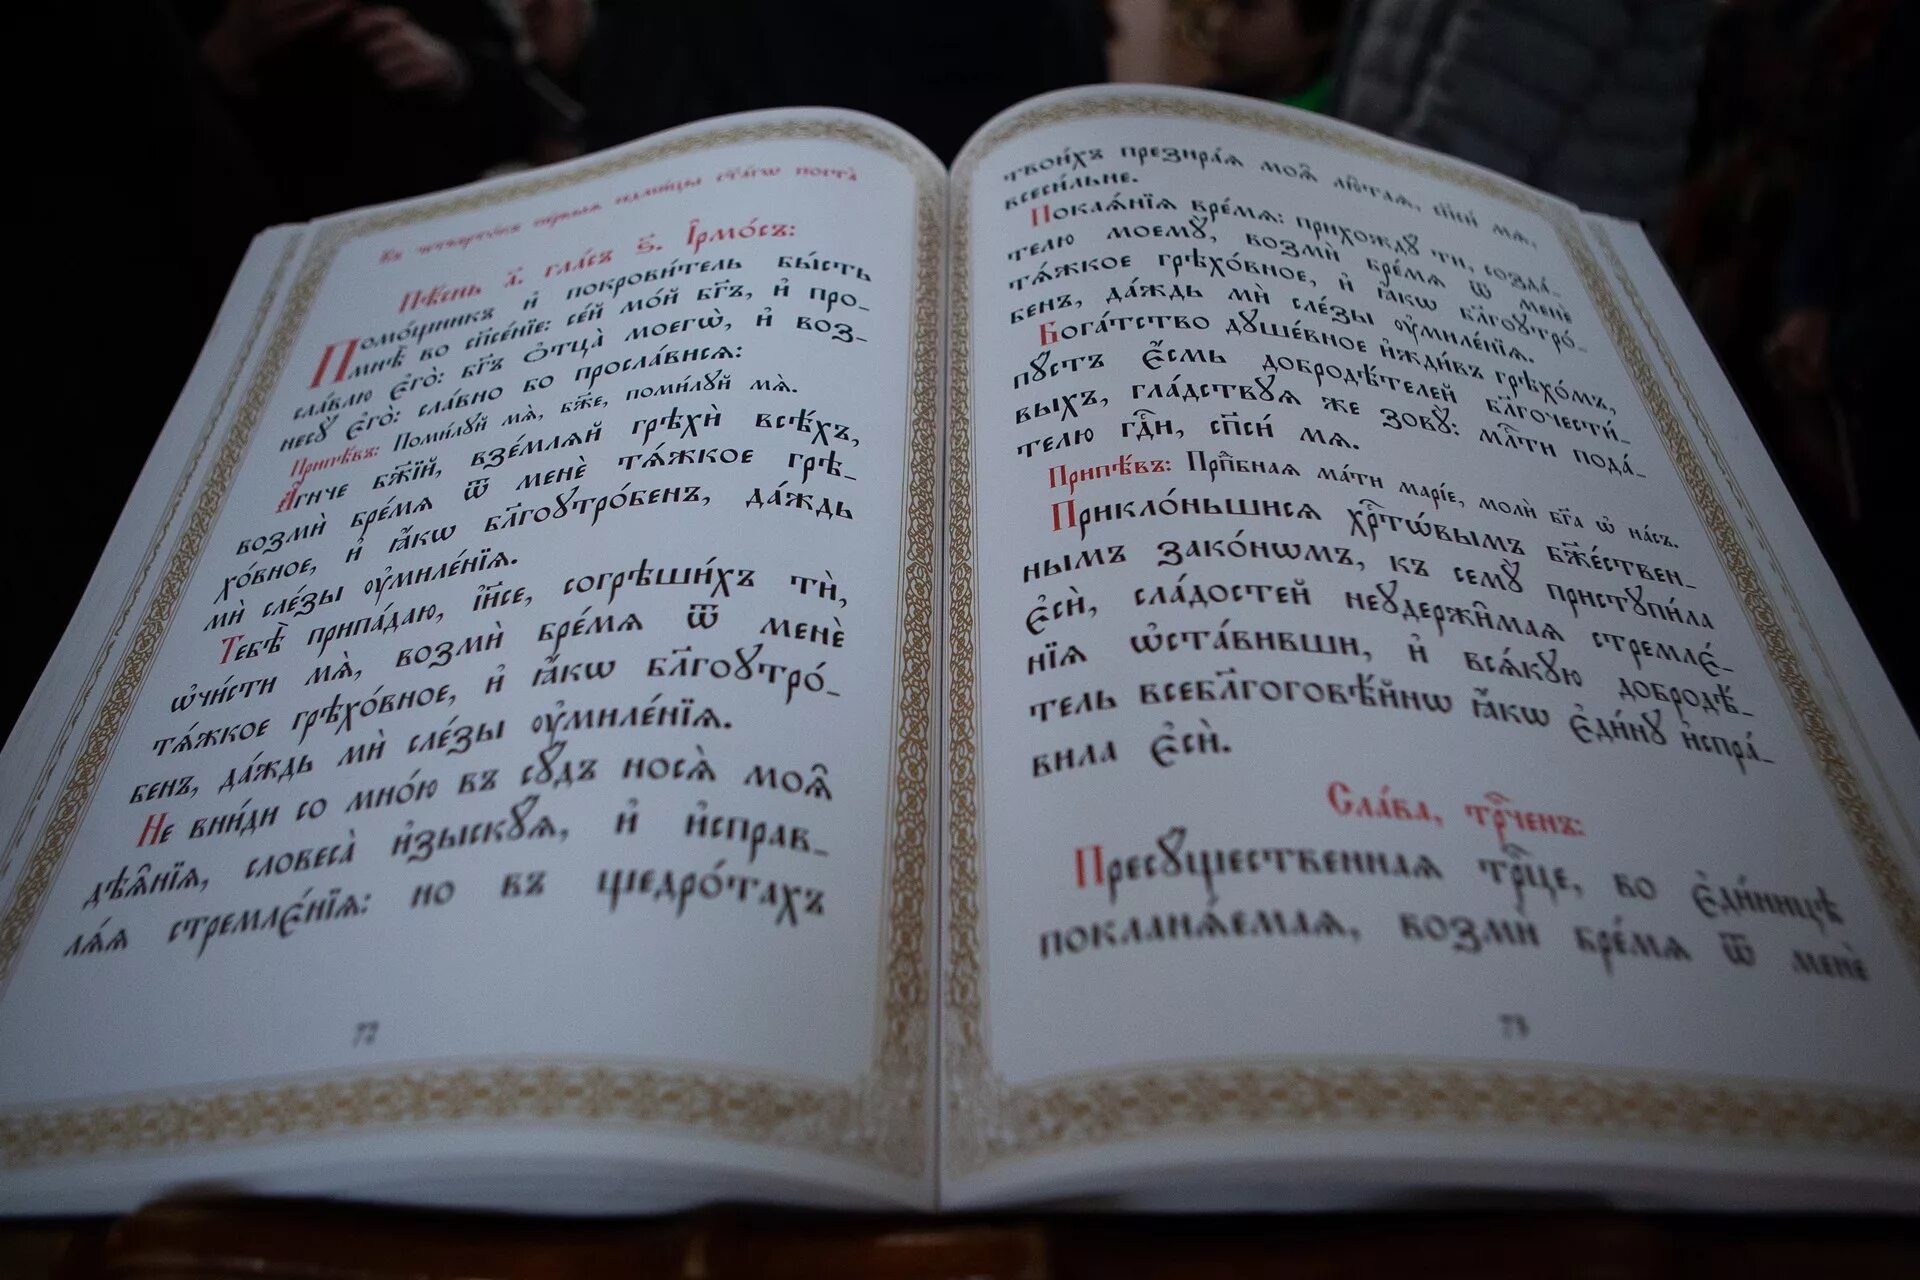 Въ четверто́къ пе́рвыя седми́цы ст҃а́гѡ поста̀
Пѣ́снь а҃. гла́съ ѕ҃. І҆рмо́съ:
Помо́щникъ и҆ покрови́тель бы́сть
мнѣ̀ во сп҃се́нїе: се́й мо́й бг҃ъ, и҆ про-
сла́влю є҆го̀: бг҃ъ ѻ҆тца̀ моегѡ̀, и҆ воз-
несꙋ̀ є҆го̀: сла́вно бо просла́висѧ:
Припѣ́въ: Поми́лꙋй мѧ̀, бж҃е, поми́лꙋй мѧ̀.
А҆́гнче бж҃їй, взе́млѧй грѣхѝ всѣ́хъ,
возмѝ бре́мѧ ѿ менє̀ тѧ́жкое грѣ-
хо́вное, и҆ ꙗ҆́кѡ бл҃гоꙋтро́бенъ, да́ждь
мѝ сле́зы ᲂу҆миле́нїѧ.
Тебѣ̀ припа́даю, і҆и҃се, согрѣши́хъ тѝ,
ѡ҆чи́сти мѧ̀, возмѝ бре́мѧ ѿ менє̀
тѧ́жкое грѣхо́вное, и҆ ꙗ҆́кѡ бл҃гоꙋтро́-
бенъ, да́ждь мѝ сле́зы ᲂу҆миле́нїѧ.
Не вни́ди со мно́ю въ сꙋ́дъ носѧ̀ моѧ҄
дѣѧ҄нїѧ, словеса̀ и҆зыскꙋ́ѧ, и҆ и҆справ-
лѧ́ѧ стремлє́нїѧ: но въ щедро́тахъ
72
твои́хъ презира́ѧ моѧ҄ лю҄таѧ, сп҃си́ мѧ,
всеси́льне.
Покаѧ́нїѧ вре́мѧ: прихождꙋ́ ти, созда́-
телю моемꙋ̀, возмѝ бре́мѧ ѿ менє̀
тѧ́жкое грѣхо́вное, и҆ ꙗ҆́кѡ бл҃гоꙋтро́-
бенъ, да́ждь мѝ сле́зы ᲂу҆миле́нїѧ.
Бога́тство дꙋше́вное и҆жди́въ грѣхо́мъ,
пꙋ́стъ є҆́смь доброде́телей бл҃гочести́-
выхъ, гла́дствꙋѧ же зовꙋ̀: млⷭ҇ти пода́-
телю гдⷭ҇и, сп҃си́ мѧ.
Припѣ́въ: Прпⷣбнаѧ ма́ти марі́е, молѝ бг҃а ѡ҆ на́съ.
Прикло́ньшисѧ хрⷭ҇то́вымъ бж҃е́ствен-
нымъ зако́нѡмъ, къ семꙋ̀ пристꙋпи́ла
є҆сѝ, сла́достей неꙋдержи҄маѧ стремлє́-
нїѧ ѡ҆ста́вивши, и҆ всѧ́кꙋю доброде́-
тель всебл҃гоговѣ́йнѡ ꙗ҆́кѡ є҆ди́нꙋ и҆спра́-
вила є҆сѝ.
Сла́ва, трⷪ҇ченъ:
Пресꙋ́щественнаѧ трⷪ҇це, во є҆ди́ницѣ
покланѧ́емаѧ, возмѝ бре́мѧ ѿ менє̀
73